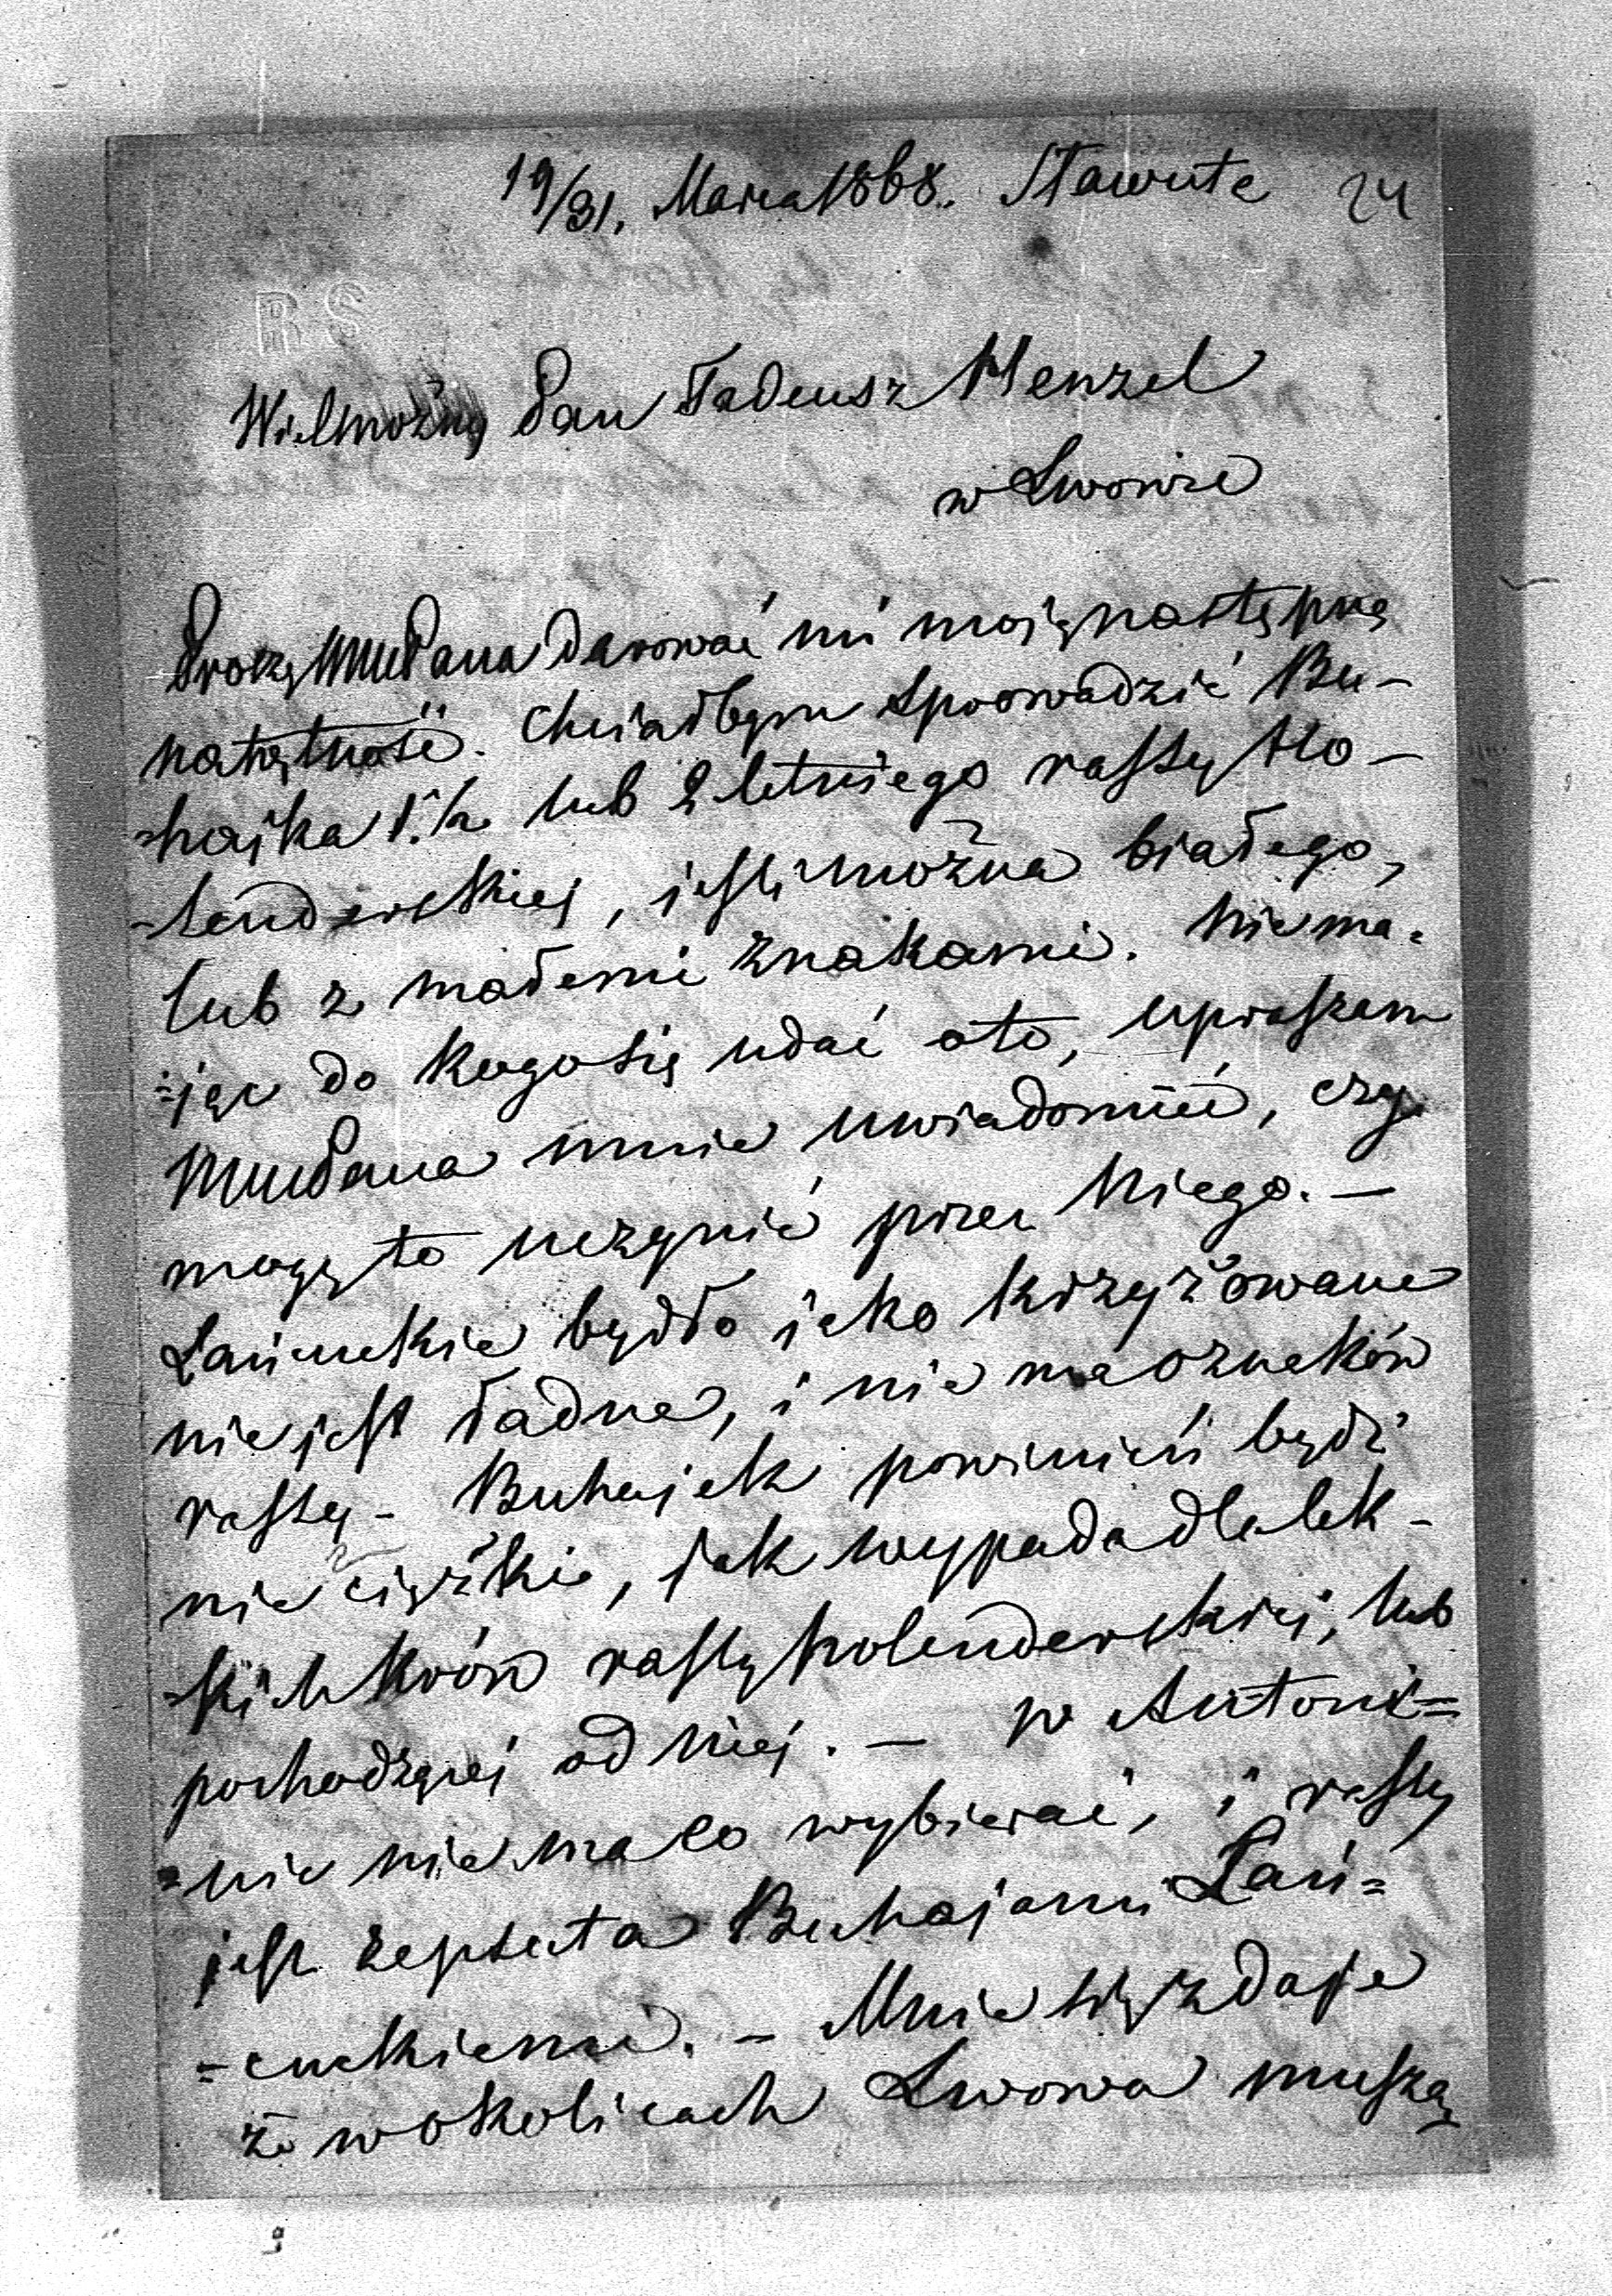 19/31. Marca 1868. Sławuta 24
RS
Wielmożny Pan Tadeusz Henzel
w Lwowie
Proszę WMuPana darować mi moię następną
natrętność. Chciałbym sprowadzić Bu-
-hajka 1.½ lub 2 letniego rassy Ho-
-lenderskiej, jeśli można białego,
lub z małemi znakami. Niema=
=jąc do kogo się udać oto, upraszam
WMuPana mnie uwiadomić, czy
mogę to uczynić przez Niego. —
Łańcuckie bydło jako krzyżowane
nie jest ładne, i nie ma oznaków
rassy - Buhajek powinień bydź
nie ciężki, jak wypada dla lek-
-kich krów rassy holenderskiej, lub
pochodzącej od niej. — w Antoni=
=nie nie ma co wybierać, i rassa
jest zepsuta Buhajami Łań=
=cuckiemi. - Mnie się zdaje
że w okolicach Lwowa muszą